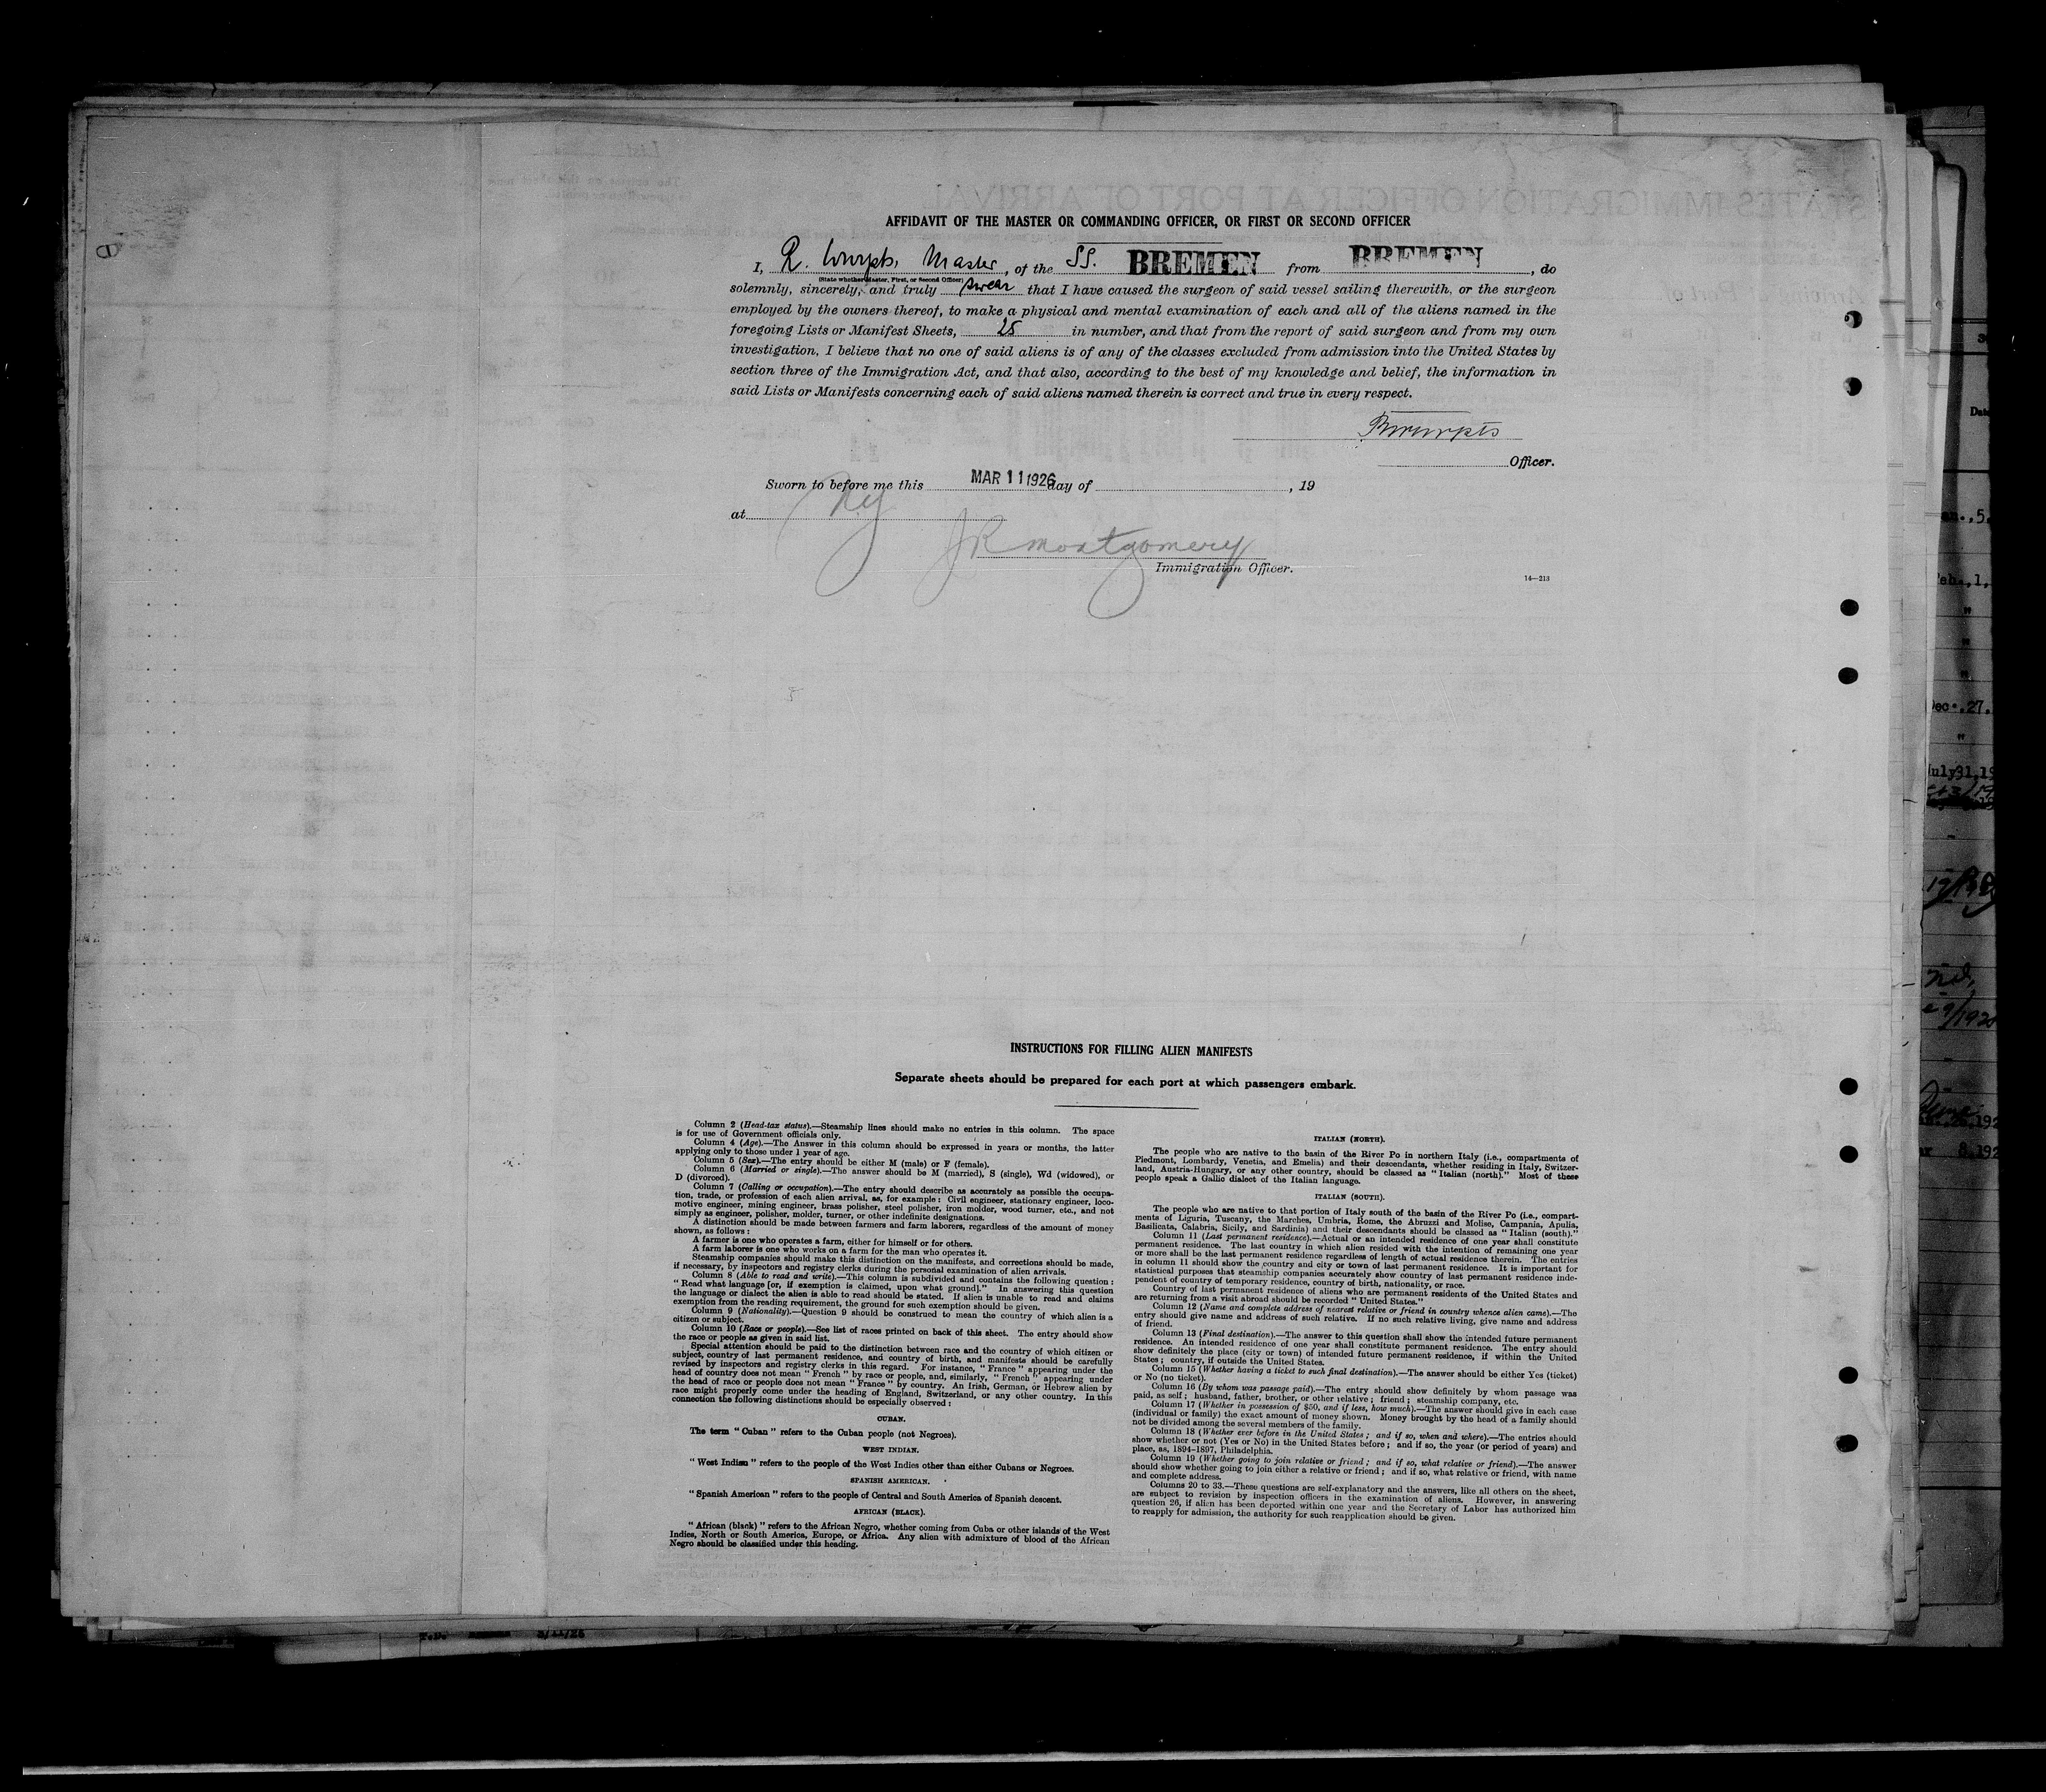 AFFIDAVIT OF THE MASTER OR COMMANDING OFFICER, OR FIRST OR SECOND OFFICER
I, R. Master, of the SS. BREMEN from BREMEN, do
(State whether Master, First, or Second Officer)
solemnly, sincerely, and truly swear that I have caused the surgeon of said vessel sailing therewith, or the surgeon
employed by the owners thereof, to make a physical and mental examination of each and all of the aliens named in the
foregoing Lists or Manifest Sheets, 25 in number, and that from the report of said surgeon and from my own
investigation, I believe that no one of said aliens is of any of the classes excluded from admission into the United States by
section three of the Immigration Act, and that also, according to the best of my knowledge and belief, the information in
said Lists or Manifests concerning each of said aliens named therein is correct and true in every respect.
Officer.
Sworn to before me this MAR 11 1926 day of , 19
at NY
JR Montgomery
Immigration Officer.
14—213
INSTRUCTIONS FOR FILLING ALIEN MANIFESTS
Separate sheets should be prepared for each port at which passengers embark.
Column 2 (Head-tax status).—Steamship lines should make no entries in this column. The space
is for use of Government officials only.
Column 4 (Age).—The Answer in this column should be expressed in years or months, the latter
applying only to those under 1 year of age.
Column 5 (Sex).—The entry should be either M (male) or F (female).
Column 6 (Married or single).—The answer should be M (married), S (single), Wd (widowed), or
D (divorced).
Column 7 (Calling or occupation).—The entry should describe as accurately as possible the occupa-
tion, trade, or profession of each alien arrival, as, for example: Civil engineer, stationary engineer, loco-
motive engineer, mining engineer, brass polisher, steel polisher, iron molder, wood turner, etc., and not
simply as engineer, polisher, molder, turner, or other indefinite designations.
A distinction should be made between farmers and farm laborers, regardless of the amount of money
shown, as follows:
A farmer is one who operates a farm, either for himself or for others.
A farm laborer is one who works on a farm for the man who operates it.
Steamship companies should make this distinction on the manifests, and corrections should be made,
if necessary, by inspectors and registry clerks during the personal examination of alien arrivals.
Column 8 (Able to read and write).—This column is subdivided and contains the following question:
"Read what language [or, if exemption is claimed, upon what ground]." In answering this question
the language or dialect the alien is able to read should be stated. If alien is unable to read and claims
exemption from the reading requirement, the ground for such exemption should be given.
Column 9 (Nationality).—Question 9 should be construed to mean the country of which alien is a
citizen or subject.
Column 10 (Race or people).—See list of races printed on back of this sheet. The entry should show
the race or people as given in said list.
Special attention should be paid to the distinction between race and the country of which citizen or
subject, country of last permanent residence, and country of birth, and manifests should be carefully
revised by inspectors and registry clerks in this regard. For instance, "France" appearing under the
head of country does not mean "French" by race or people, and, similarly, "French" appearing under
the head of race or people does not mean "France" by country. An Irish, German, or Hebrew alien by
race might properly come under the heading of England, Switzerland, or any other country. In this
connection the following distinctions should be especially observed:
CUBAN.
The term "Cuban" refers to the Cuban people (not Negroes).
WEST INDIAN.
"West Indian" refers to the people of the West Indies other than either Cubans or Negroes.
SPANISH AMERICAN.
"Spanish American" refers to the people of Central and South America of Spanish descent.
AFRICAN (BLACK).
"African (black)" refers to the African Negro, whether coming from Cuba or other islands of the West
Indies, North or South America, Europe, or Africa. Any alien with admixture of blood of the African
Negro should be classified under this heading.
ITALIAN (NORTH).
The people who are native to the basin of the River Po in northern Italy (i.e., compartments of
Piedmont, Lombardy, Venetia, and Emelia) and their descendants, whether residing in Italy, Switzer-
land, Austria-Hungary, or any other country, should be classed as "Italian (north)." Most of these
people speak a Gallic dialect of the Italian language.
ITALIAN (SOUTH).
The people who are native to that portion of Italy south of the basin of the River Po (i.e., compart-
ments of Liguria, Tuscany, the Marches, Umbria, Rome, the Abruzzi and Molise, Campania, Apulia,
Basilicata, Calabria, Sicily, and Sardinia) and their descendants should be classed as "Italian (south)."
Column 11 (Last permanent residence).—Actual or an intended residence of one year shall constitute
permanent residence. The last country in which alien resided with the intention of remaining one year
or more shall be the last permanent residence regardless of length of actual residence therein. The entries
in column 11 should show the country and city or town of last permanent residence. It is important for
statistical purposes that steamship companies accurately show country of last permanent residence inde-
pendent of country of temporary residence, country of birth, nationality, or race.
Country of last permanent residence of aliens who are permanent residents of the United States and
are returning from a visit abroad should be recorded "United States."
Column 12 (Name and complete address of nearest relative or friend in country whence alien came).—The
entry should give name and address of such relative. If no such relative living, give name and address
of friend.
Column 13 (Final destination).—The answer to this question shall show the intended future permanent
residence. An intended residence of one year shall constitute permanent residence. The entry should
show definitely the place (city or town) of intended future permanent residence, if within the United
States; country, if outside the United States.
Column 15 (Whether having a ticket to such final destination).—The answer should be either Yes (ticket)
or No (no ticket).
Column 16 (By whom was passage paid).—The entry should show definitely by whom passage was
paid, as self; husband, father, brother, or other relative; friend; steamship company, etc.
Column 17 (Whether in possession of $50, and if less, how much).—The answer should give in each case
(individual or family) the exact amount of money shown. Money brought by the head of a family should
not be divided among the several members of the family.
Column 18 (Whether ever before in the United States; and if so, when and where).—The entries should
show whether or not (Yes or No) in the United States before; and if so, the year (or period of years) and
place, as, 1894–1897, Philadelphia.
Column 19 (Whether going to join relative or friend; and if so, what relative or friend).—The answer
should show whether going to join either a relative or friend; and if so, what relative or friend, with name
and complete address.
Columns 20 to 33.—These questions are self-explanatory and the answers, like all others on the sheet,
are subject to revision by inspection officers in the examination of aliens. However, in answering
question 26, if alien has been deported within one year and the Secretary of Labor has authorized him
to reapply for admission, the authority for such reapplication should be given.